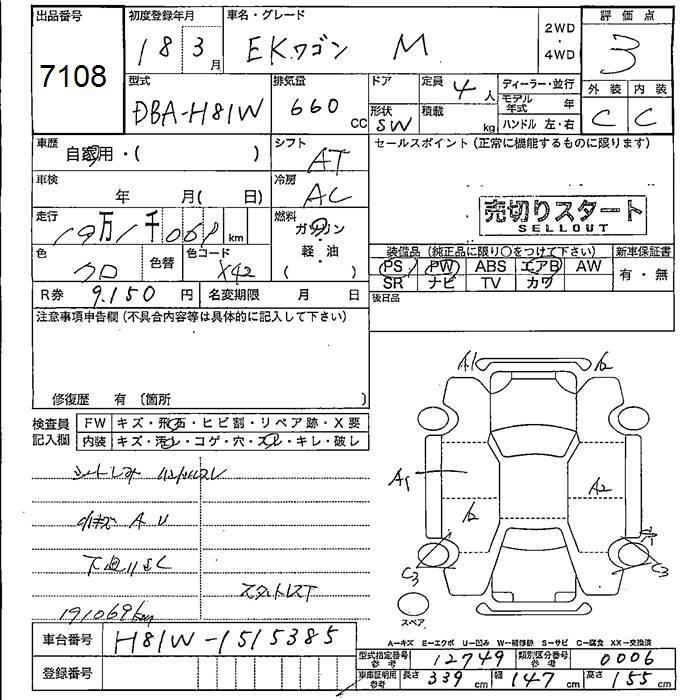 出品番号 初度登録年月 車名・グレード 2WD・4WD 評価点
7108 18 3月 EKワゴン M 3
型式 排気量 ドア 定員 4人 ディーラー・並行 外装 内装
DBA-H81W 660 CC 形状 SW 積載 kg モデル年式 年 C C
ハンドル 左・右
車歴 シフト セールスポイント (正常に機能するものに限ります)
自家用・( ) AT
車検 冷房
年 月( 日) AC 売切りスタート
SELLOUT
走行 燃料
19万1千061km ガソリン・軽・油 ( )
色 色替 色コード 装備品 (純正品に限り○をつけて下さい) 新車保証書
クロ X42 PS PW ABS エアB AW 有・無
SR ナビ TV カワ
R券 9,150円 名変期限 月 日 後日品
注意事項申告欄 (不具合内容等は具体的に記入して下さい)
修復歴 有 (箇所 )
検査員記入欄 FW キズ・飛石・ヒビ割・リペア跡・X要
内装 キズ・汚レ・コゲ・穴・スレ・キレ・破レ
A1
A1 A2
C3 C3
スペア
小キズ A U
191069km
A―キズ E―エクボ U―凹み W―補修跡 S―サビ C―腐食 XX―交換済
車台番号 H81W-1515385
型式指定番号 参考 12749 類別区分番号 参考 0006
登録番号
車庫証明用 参考 長さ 339cm 幅 147cm 高さ 155cm